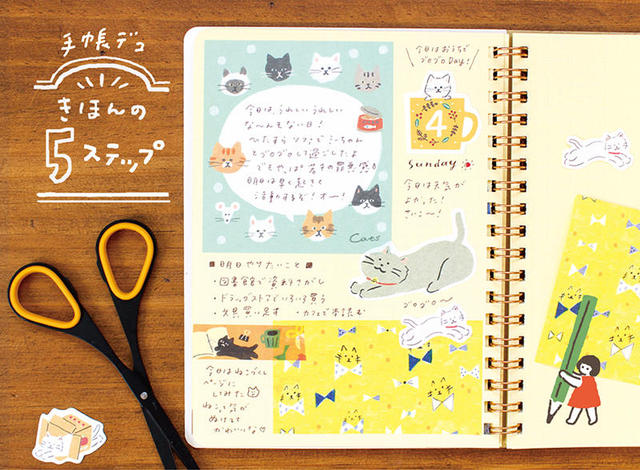 手帳デコ
きほんの
5ステップ
今日は、うれしい うれしい
な〜んもない日!
ひたすら ソファで ミーちゃん
とゴロゴロして過ごしたよ
でもやっぱ 若干の罪悪感。
明日は早く起きて
活動するぞ!オー!
Cats
今日はおうちで
ゴロゴロDay!
4
sunday
今日は天気が
よかった。
さいこ〜!
■ 明日やりたいこと ■
・図書館で資料さがし
・ドラッグストアでいろいろ買う
・文具買い足す ・カフェで本読む
ゴロゴロ〜
今日はねこづくし
ページに
してみた
ねこって気が
ぬけてて
かわいいな♡